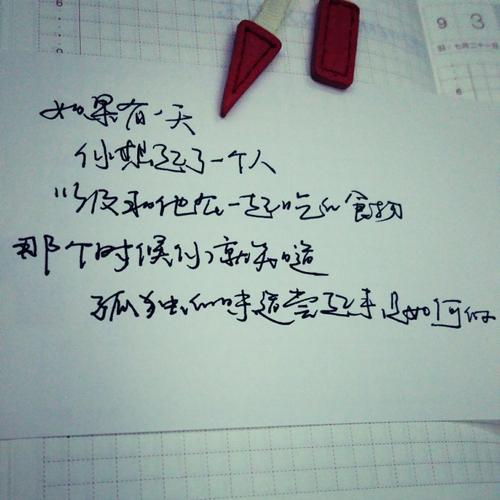 6
9 3
七月二十一
如果有一天
你想起了一个人
以及和他在一起吃的食物
那个时候你就知道
孤独的味道尝起来是如何的